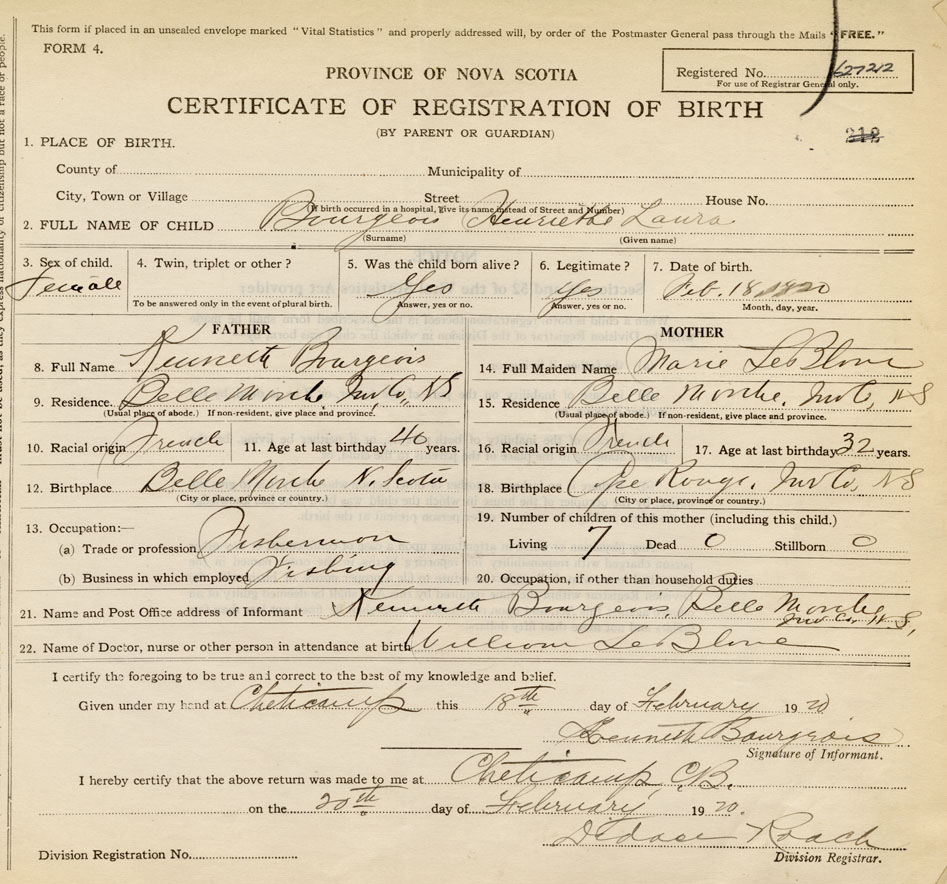 This form if placed in an unsealed envelope marked "Vital Statistics" and properly addressed will, by order of the Postmaster General pass through the Mails "FREE."
FORM 4.
PROVINCE OF NOVA SCOTIA
Registered No.
For use of Registrar General only.
CERTIFICATE OF REGISTRATION OF BIRTH
(BY PARENT OR GUARDIAN)
1. PLACE OF BIRTH.
County of Municipality of
City, Town or Village Street House No.
(If birth occurred in a hospital, give its name instead of Street and Number)
2. FULL NAME OF CHILD Bourgeois Henriette Laura
(Surname) (Given name)
3. Sex of child. 4. Twin, triplet or other? 5. Was the child born alive? 6. Legitimate? 7. Date of birth.
Female Yes Yes Feb. 18
To be answered only in the event of plural birth. Answer, yes or no. Answer, yes or no. Month, day, year.
FATHER MOTHER
8. Full Name Kenneth Bourgeois 14. Full Maiden Name Marie LeBlanc
9. Residence. Belle Marche Inv Co, NS 15. Residence Belle Marche. Inv Co, NS
(Usual place of abode.) If non-resident, give place and province. (Usual place of abode.) If non-resident, give place and province.
10. Racial origin French 11. Age at last birthday 46 years. 16. Racial origin French 17. Age at last birthday 32 years.
12. Birthplace Belle Marche N. Scotia 18. Birthplace Cape Rouge. Inv Co, NS
(City or place, province or country.) (City or place, province or country.)
13. Occupation:— 19. Number of children of this mother (including this child.)
(a) Trade or profession Fisherman Living 7 Dead 0 Stillborn 0
(b) Business in which employed Fishing 20. Occupation, if other than household duties
21. Name and Post Office address of Informant Kenneth Bourgeois, Belle Marche Inv Co. N.S.
22. Name of Doctor, nurse or other person in attendance at birth William LeBlanc
I certify the foregoing to be true and correct to the best of my knowledge and belief.
Given under my hand at Cheticamp this 18th day of February 1920
Kenneth Bourgeois
Signature of Informant.
I hereby certify that the above return was made to me at Cheticamp, C.B.
on the 20th day of February 1920.
Roach
Division Registration No. Division Registrar.